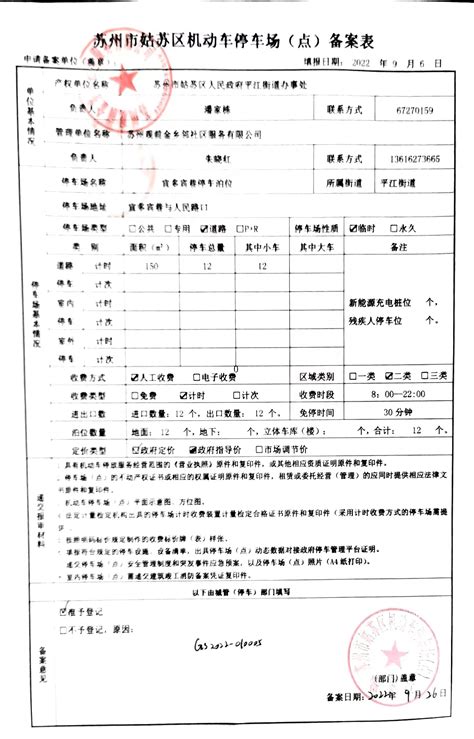 苏州市姑苏区机动车停车场（点）备案表
申请备案单位（盖章） 填报日期：2022 年 9 月 6 日
单位基本情况
产权单位名称 苏州市姑苏区人民政府平江街道办事处
负责人 潘家栋 联系方式 67270159
管理单位名称 苏州观前金乡邻社区服务有限公司
负责人 朱晓红 联系方式 13616273665
停车场名称 宜家宾巷停车泊位 所属街道 平江街道
停车场基本情况
停车场地址 宜家宾巷与人民路口
停车场类型 □公共 □专用 ☑道路 □P+R 停车场性质 ☑临时 □永久
类 别 面积（m²） 停车总量 其中小车 其中大车 备注
道路 计时 150 12 12
停车 计次
室内 计时 新能源充电桩位 个，
停车 计次 残疾人停车位 个。
室外 计时
停车 计次
0
收费方式 ☑人工收费 □电子收费 区域类别 □一类 ☑二类 □三类
收费类型 □免费 ☑计时 □计次 收费时段 8：00—22:00
进出口数 进口数量：12 个，出口数量：12 个。 免停时间 30 分钟
泊位数量 地面：12 个，地下： 个，立体车库（楼）： 个，合计：12 个。
定价类型 □政府定价 ☑政府指导价 □市场调节价
递交报审材料
具有机动车停放服务经营范围的《营业执照》原件和复印件，或其他相应资质证明原件和复印件。
停车场（点）的不动产权证书或相应的权属证明原件和复印件，租赁或委托经营（管理）的应同时提供相应法律文书原件和复印件。
机动车停车场（点）平面示意图、方位图。
法定计量检定机构出具的停车场计时收费装置计量检定合格证书原件和复印件（采用计时收费方式的停车场需提
按照明码标价规定制作的收费标价牌（表）样张。
填报符合规定的停车设施、设备清单，出具停车场（点）动态数据对接政府停车管理平台证明。
递交停车场（点）安全管理制度和突发事件应急预案，以及停车场（点）照片（A4纸打印）。
室内停车场（点）需递交建筑竣工消防备案凭证复印件。
以下由城管（停车）部门填写
备案意见
☑准予登记
□不予登记，原因：
GS2022-010005
（部门）盖章
备案日期：2022年 9月26日